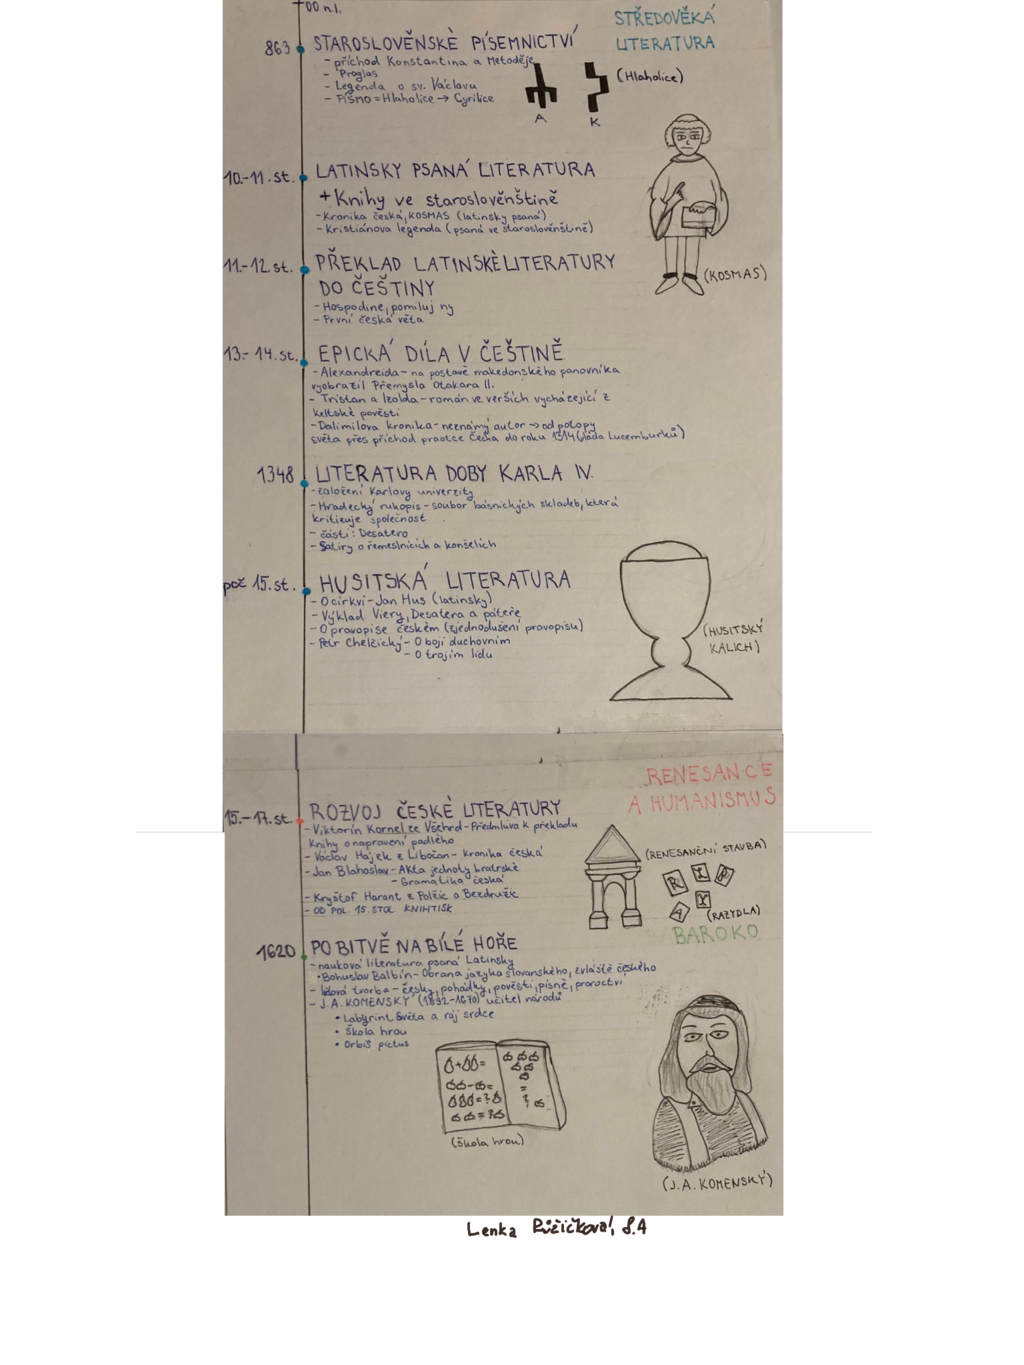 00 n.l.
STŘEDOVĚKÁ
LITERATURA
863
STAROSLOVĚNSKÉ PÍSEMNICTVÍ
- příchod Konstantina a Metoděje
- Proglas
- Legenda o sv. Václavu
- PÍSMO = Hlaholice → Cyrilice
(Hlaholice)
A K
10.-11. st.
LATINSKY PSANÁ LITERATURA
+ Knihy ve staroslověnštině
- Kronika česká, KOSMAS (latinsky psaná)
- Kristiánova legenda (psaná ve staroslověnštině)
(KOSMAS)
11.-12. st.
PŘEKLAD LATINSKÉ LITERATURY
DO ČEŠTINY
- Hospodine, pomiluj ny
- První česká věta
13.-14. st.
EPICKÁ DÍLA V ČEŠTINĚ
- Alexandreida - na postavě makedonského panovníka
vyobrazil Přemysla Otakara II.
- Tristan a Izolda - román ve verších vycházející z
keltské pověsti
- Dalimilova kronika - neznámý autor → od potopy
světa přes příchod praotce Čecha do roku 1314 (vláda Lucemburků)
1348
LITERATURA DOBY KARLA IV.
- založení Karlovy univerzity
- Hradecký rukopis - soubor básnických skladeb, která
kritizuje společnost
- části: Desatero
- Satiry o řemeslnících a konšelích
poč 15. st.
HUSITSKÁ LITERATURA
- O církvi - Jan Hus (latinsky)
- Výklad Viery, Desatera a páteře
- O pravopise českém (zjednodušení pravopisu)
- Petr Chelčický - O boji duchovním
- O trojím lidu
(HUSITSKÝ
KALICH)
RENESANCE
A HUMANISMUS
15.-17. st.
ROZVOJ ČESKÉ LITERATURY
- Viktorín Kornel ze Všehrd - Předmluva k překladu
Knihy o napravení padlého
- Václav Hájek z Libočan - kronika česká
- Jan Blahoslav - Akta jednoty bratrské
- Gramatika česká
- Kryštof Harant z Polžic a Bezdružic
- OD POL. 15. STOL KNIHTISK
(RENESANČNÍ STAVBA)
(RAZYDLA)
BAROKO
1620
PO BITVĚ NA BÍLÉ HOŘE
- nauková literatura psaná Latinsky
• Bohuslav Balbín - Obrana jazyka slovanského, zvláště českého
- lidová tvorba - česky, pohádky, pověsti, písně, proroctví
- J.A. KOMENSKÝ (1592-1670) učitel národů
• Labyrint Světa a ráj srdce
• Škola hrou
• Orbis pictus
(škola hrou)
(J.A. KOMENSKÝ)
Lenka Růžičková, 8.A